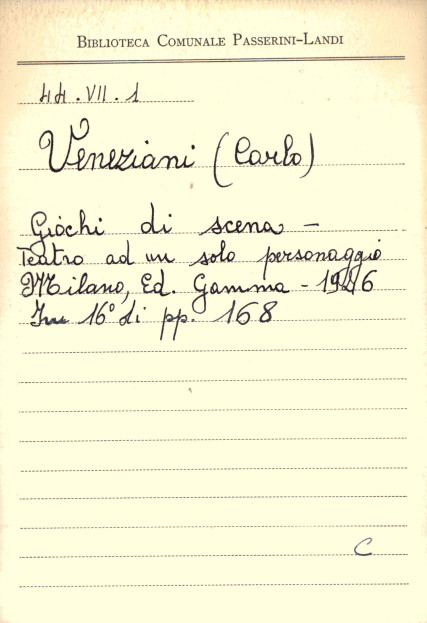 BIBLIOTECA COMUNALE PASSERINI-LANDI
44.VII.1
Veneziani (Carlo)
Giochi di scena -
Teatro ad un solo personaggio
Milano, Ed. Gamma - 1946
In 16° di pp. 168
C